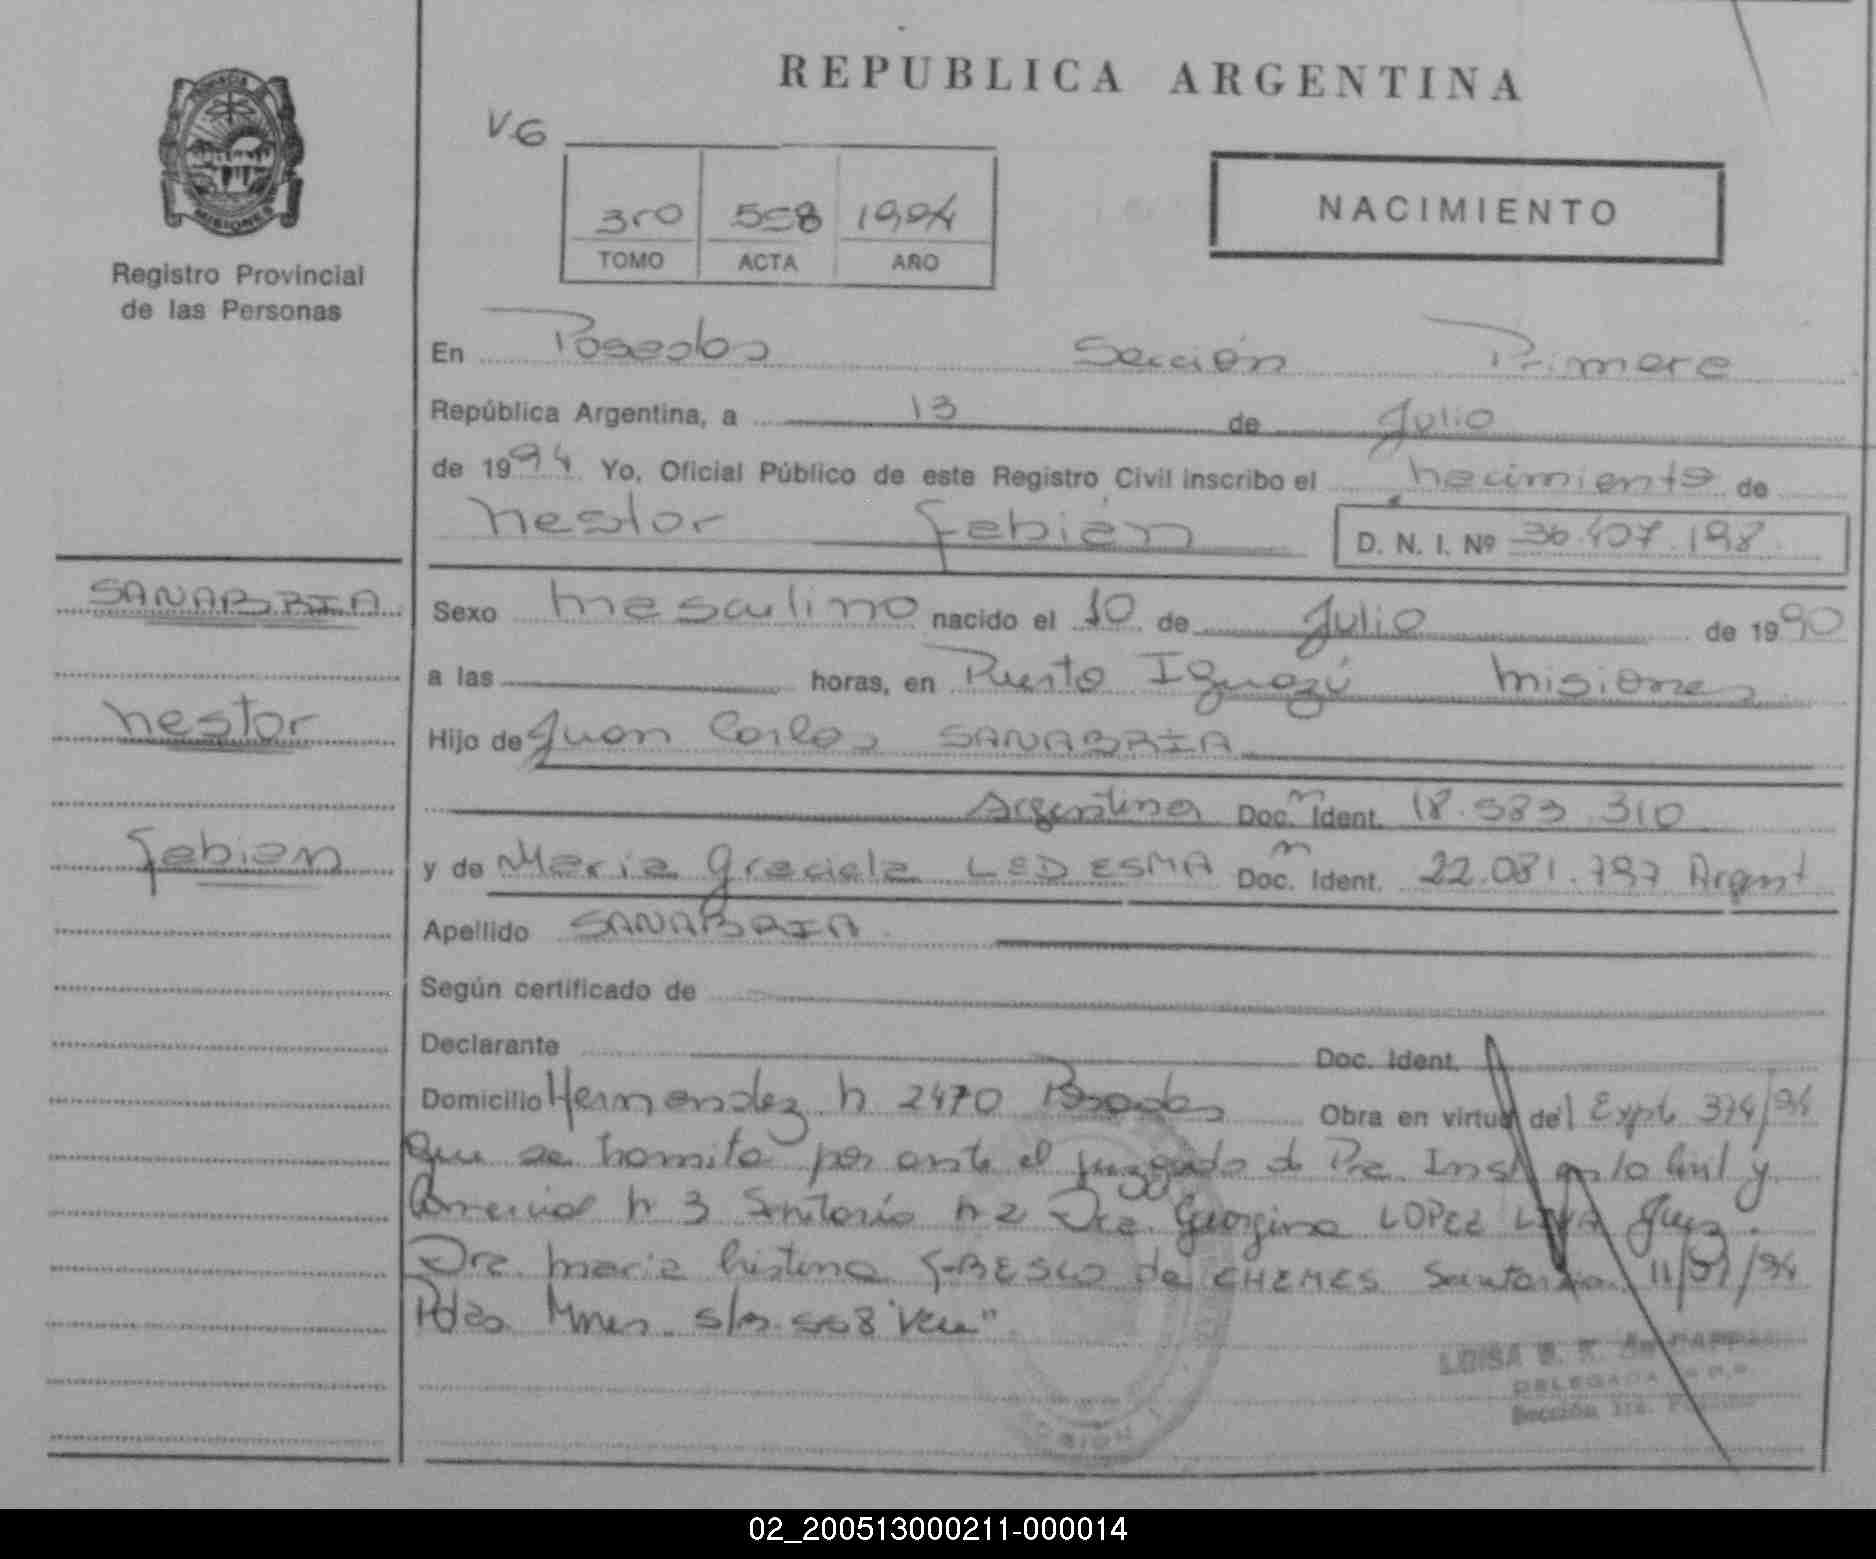 REPUBLICA ARGENTINA
PROVINCIA
MISIONES
Registro Provincial
de las Personas
V.6
3ro 558 1994
TOMO ACTA AÑO
NACIMIENTO
En Posadas Sección Primera
República Argentina, a 13 de Julio
de 1994 Yo, Oficial Público de este Registro Civil inscribo el nacimiento de
Nestor Fabián D. N. I. Nº 36.407.198
SANABRIA
Nestor
Fabian
Sexo masculino nacido el 10 de Julio de 1990
a las horas, en Puerto Iguazú Misiones
Hijo de Juan Carlos SANABRIA
Argentina Doc. m Ident. 18.583.310
y de Maria Graciela LEDESMA Doc. m Ident. 22.081.797 Argent
Apellido SANABRIA
Según certificado de
Declarante Doc. Ident.
Domicilio Hernandez n 2470 Posadas Obra en virtud del Expte 374/94
que se tramita por ante el Juzgado de Pra Inst en lo Civil y
Comercial n 3 n 2 Dra. Georgina LOPEZ Juez.
Dra. Maria Cristina de CHEMES 11/07/94
Pdas Mnes. 558 "Vale"
LUISA
DELEGADA
Sección 1ra.
02_200513000211-000014